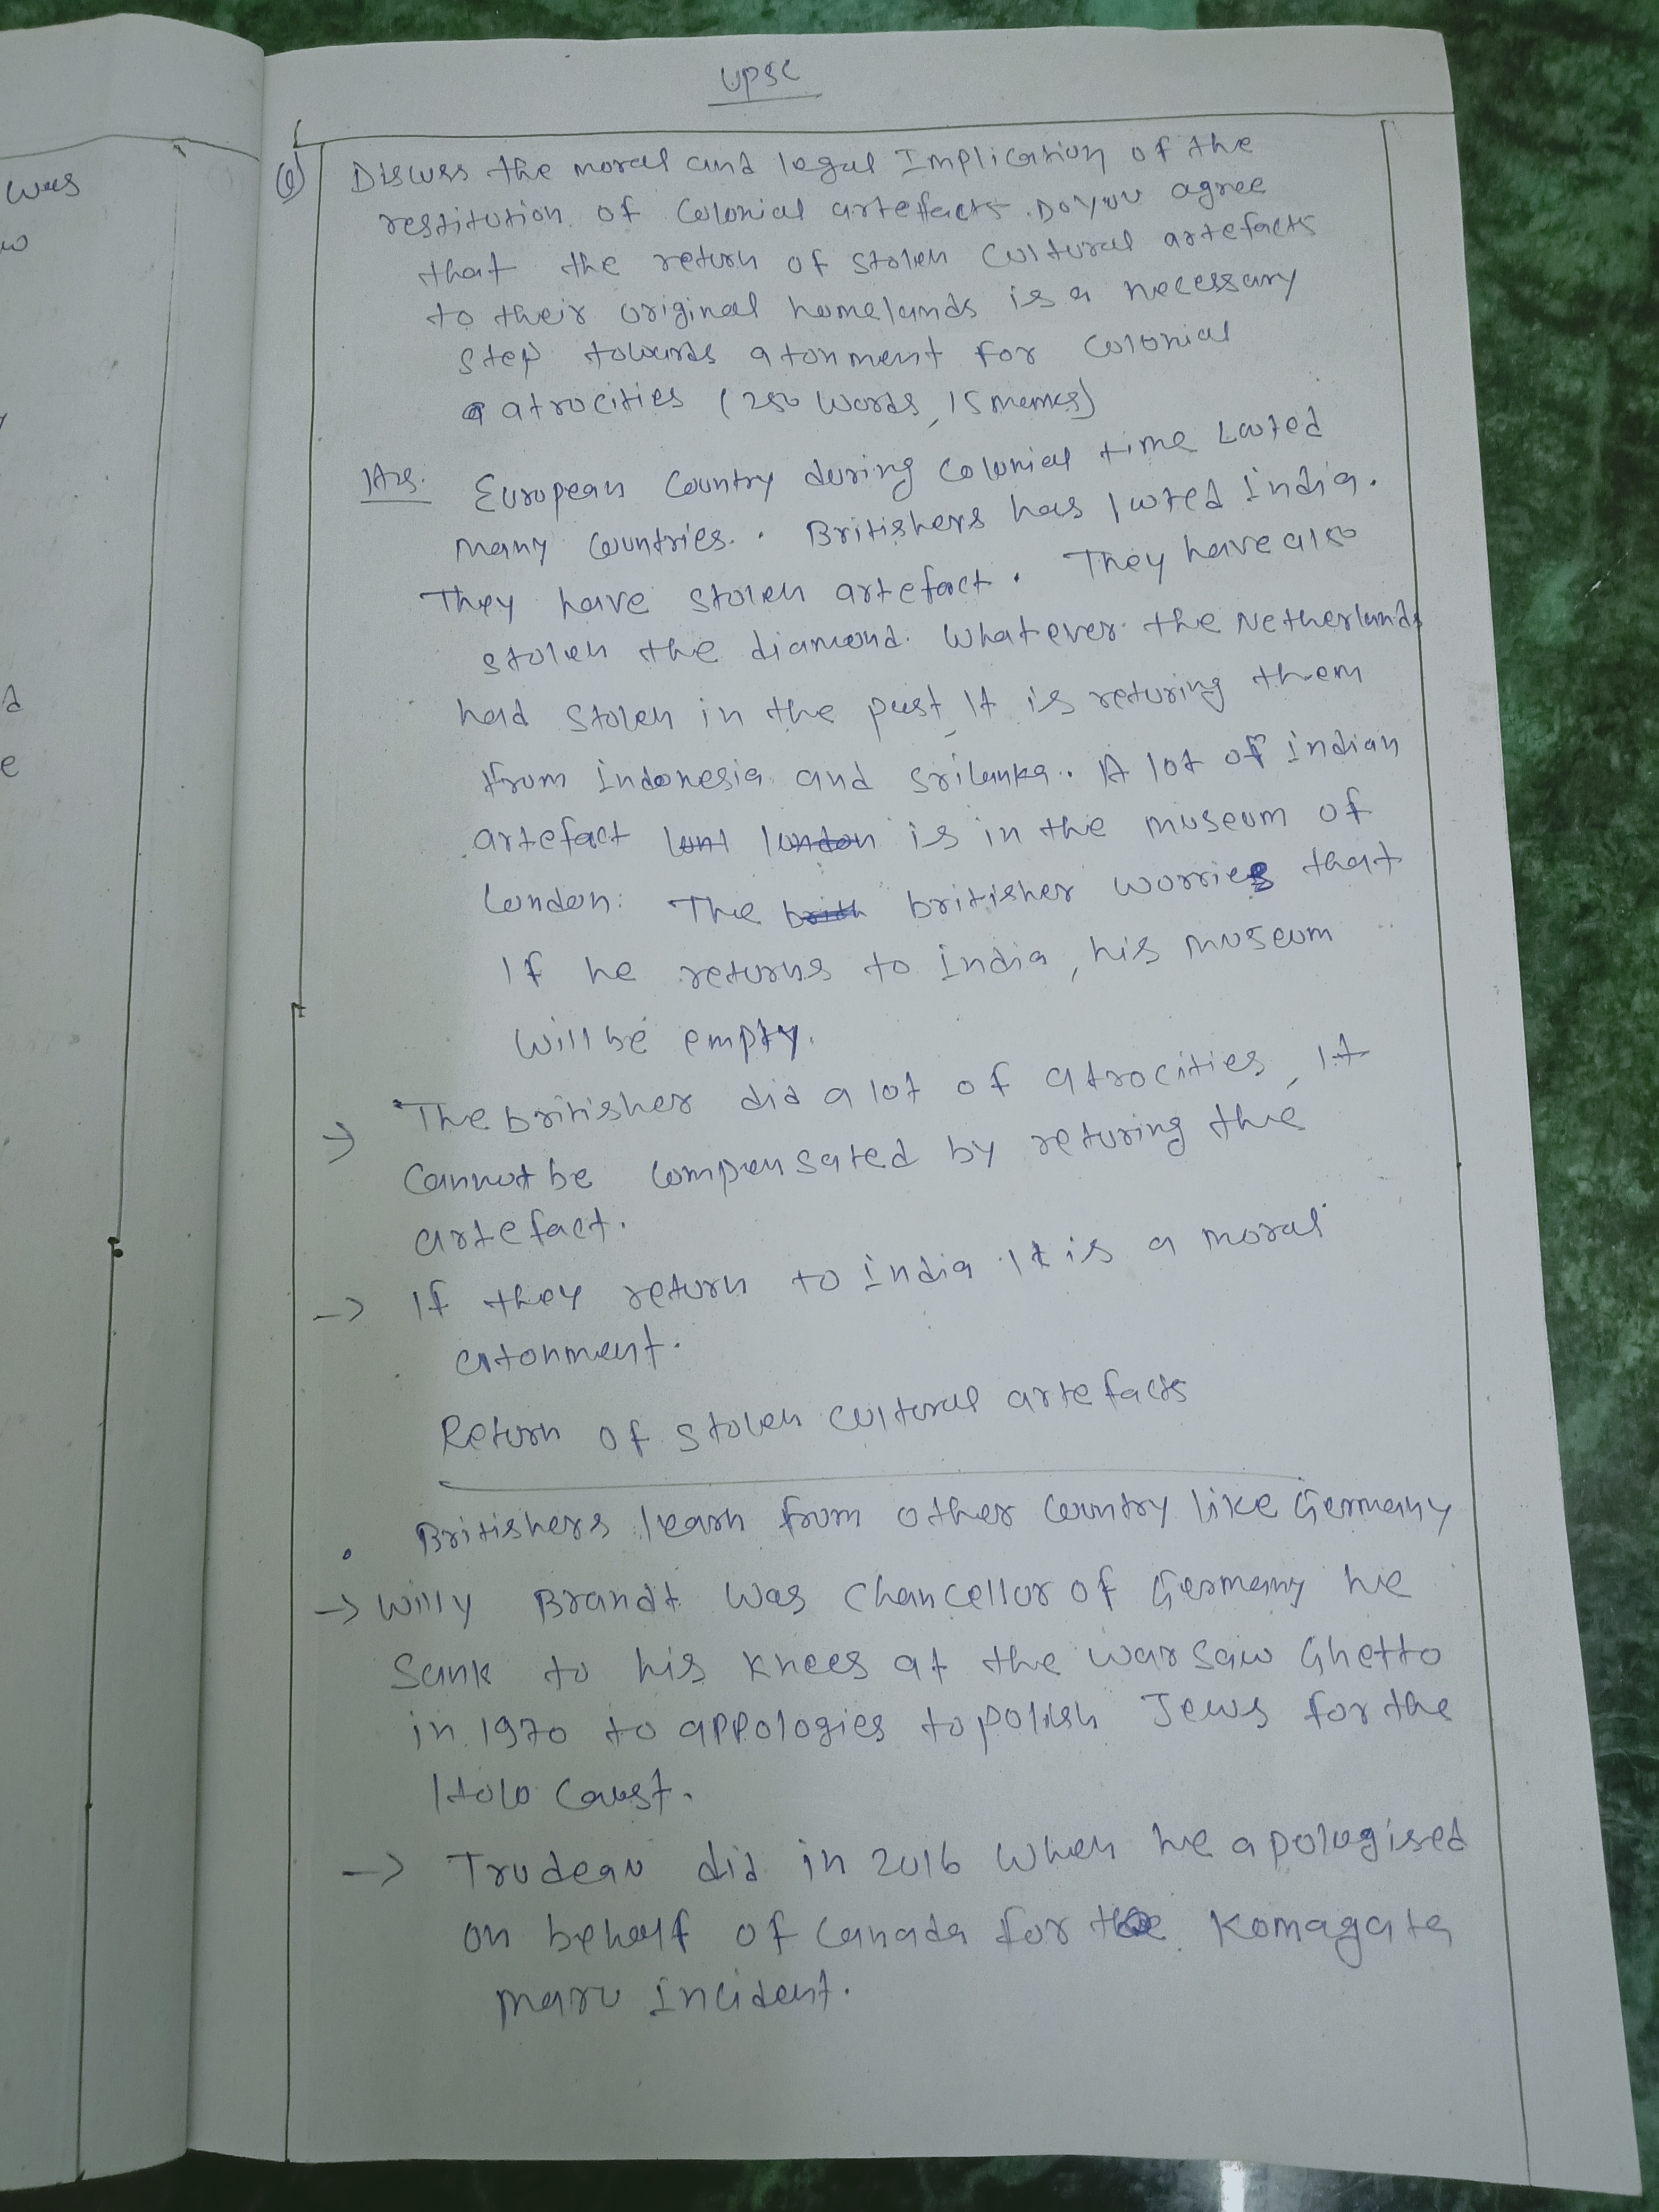 UPSC
Q) Discuss the moral and legal Implication of the
restitution of Colonial artefacts. Do you agree
that the return of stolen cultural artefacts
to their original homelands is a necessary
step towards atonment for colonial
atrocities (250 words, 15 marks)
Ans. European Country during Colonial time Looted
many countries. Britishers has looted India.
They have stolen artefact. They have also
stolen the diamond. Whatever the Netherlands
had stolen in the past, It is returing them
from Indonesia and Srilanka. A lot of indian
artefact is in the museum of
London. The britisher worries that
If he returns to India, his museum
will be empty.
-> The britisher did a lot of atrocities, It
Cannot be compensated by returing the
artefact.
-> If they return to India It is a moral
atonment.
Return of stolen cultural artefacts
• Britishers learn from other country like Germany
-> Willy Brandt was Chancellor of Germany he
Sank to his knees at the warsaw Ghetto
in 1970 to appologies to polish Jews for the
Holo Caust.
-> Trudeau did in 2016 when he apologised
on behalf of Canada for the Komagata
maru Incident.
was
w
d
e